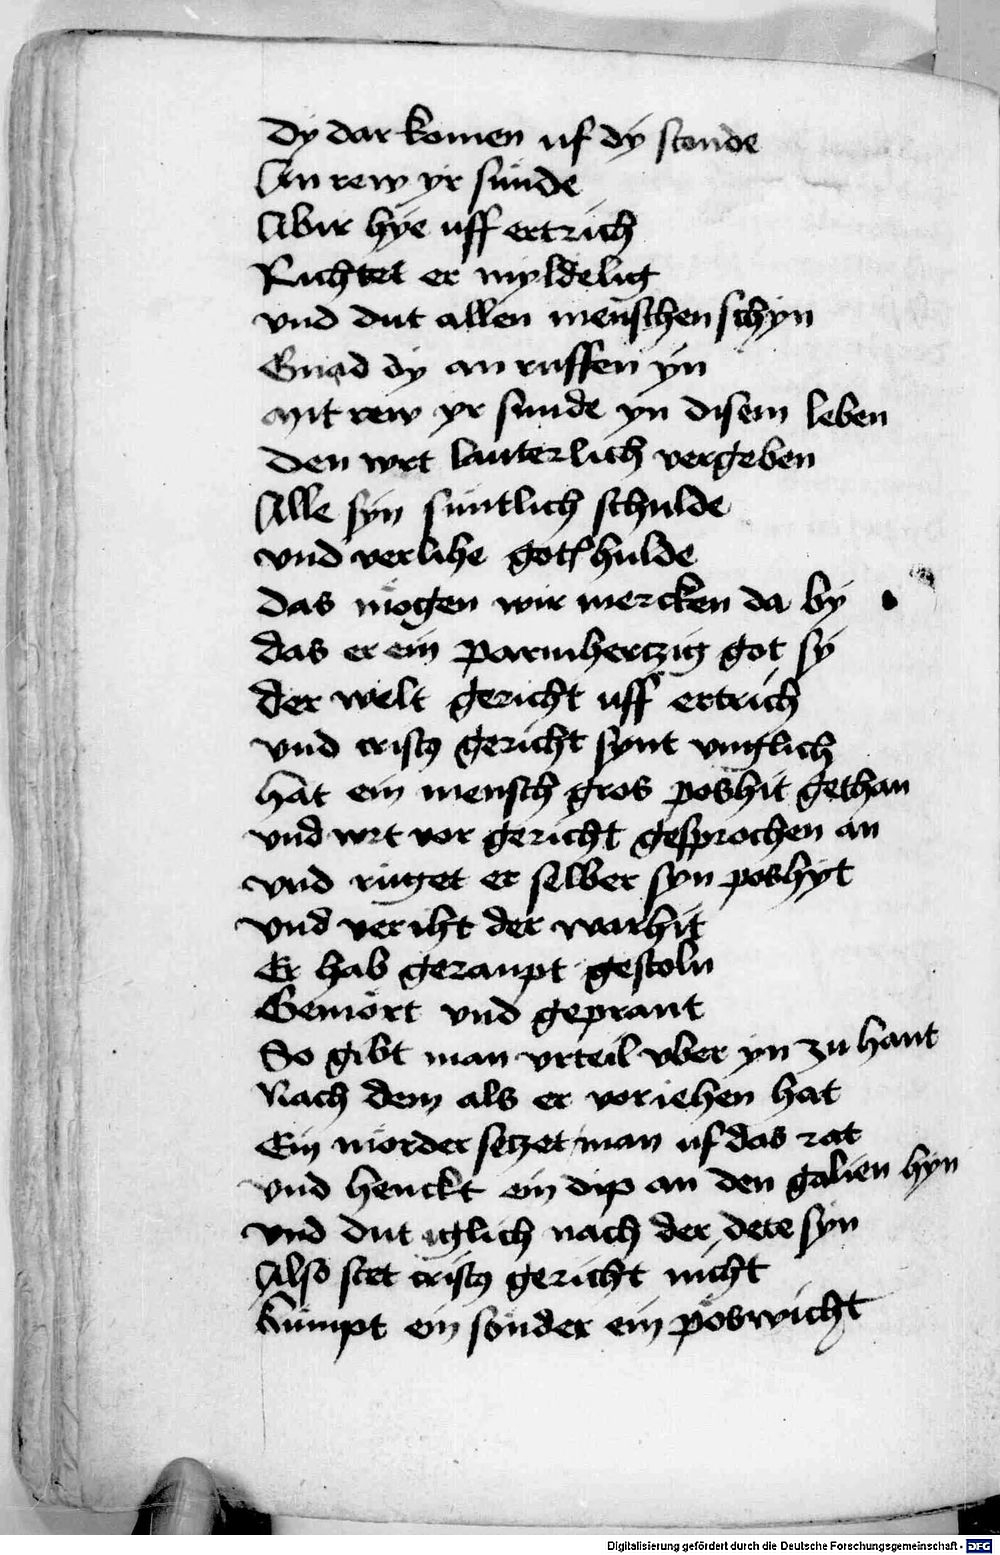 Dy dar komen uf dy stonde
An rew yr sunde
Abir hye uff ertrich
Richtet er myldelig
vnd dut allen menschen schyn
Gnad dy an ruffen yn
Mit rew yr sunde yn disem leben
Den wrt lauterlich vergeben
Alle syn suntlich schulde
vnd verlihe gots hulde
Das mogen wir mercken da by
das er ein parmhertzig got sy
der welt gericht uff ertrich
vnd cristus gericht synt vnglich
hat ein mensch gros poshit gethan
vnd wrt vor gericht gesprochen an
vnd ruget er selber syn poshyt
vnd veriht der warhit
Er hab geraupt gestoln
Gemört vnd geprant
So gibt man vrteil vber yn zu hant
Nach dem als er voriehen hat
Ein mörder setzet man uf das rat
vnd henckt ein dip an den galien hyn
vnd dut iglich nach der dete syn
Also stet cristus gericht nicht
kumpt ein sonder ein poswicht
Digitalisierung gefördert durch die Deutsche Forschungsgemeinschaft - DFG